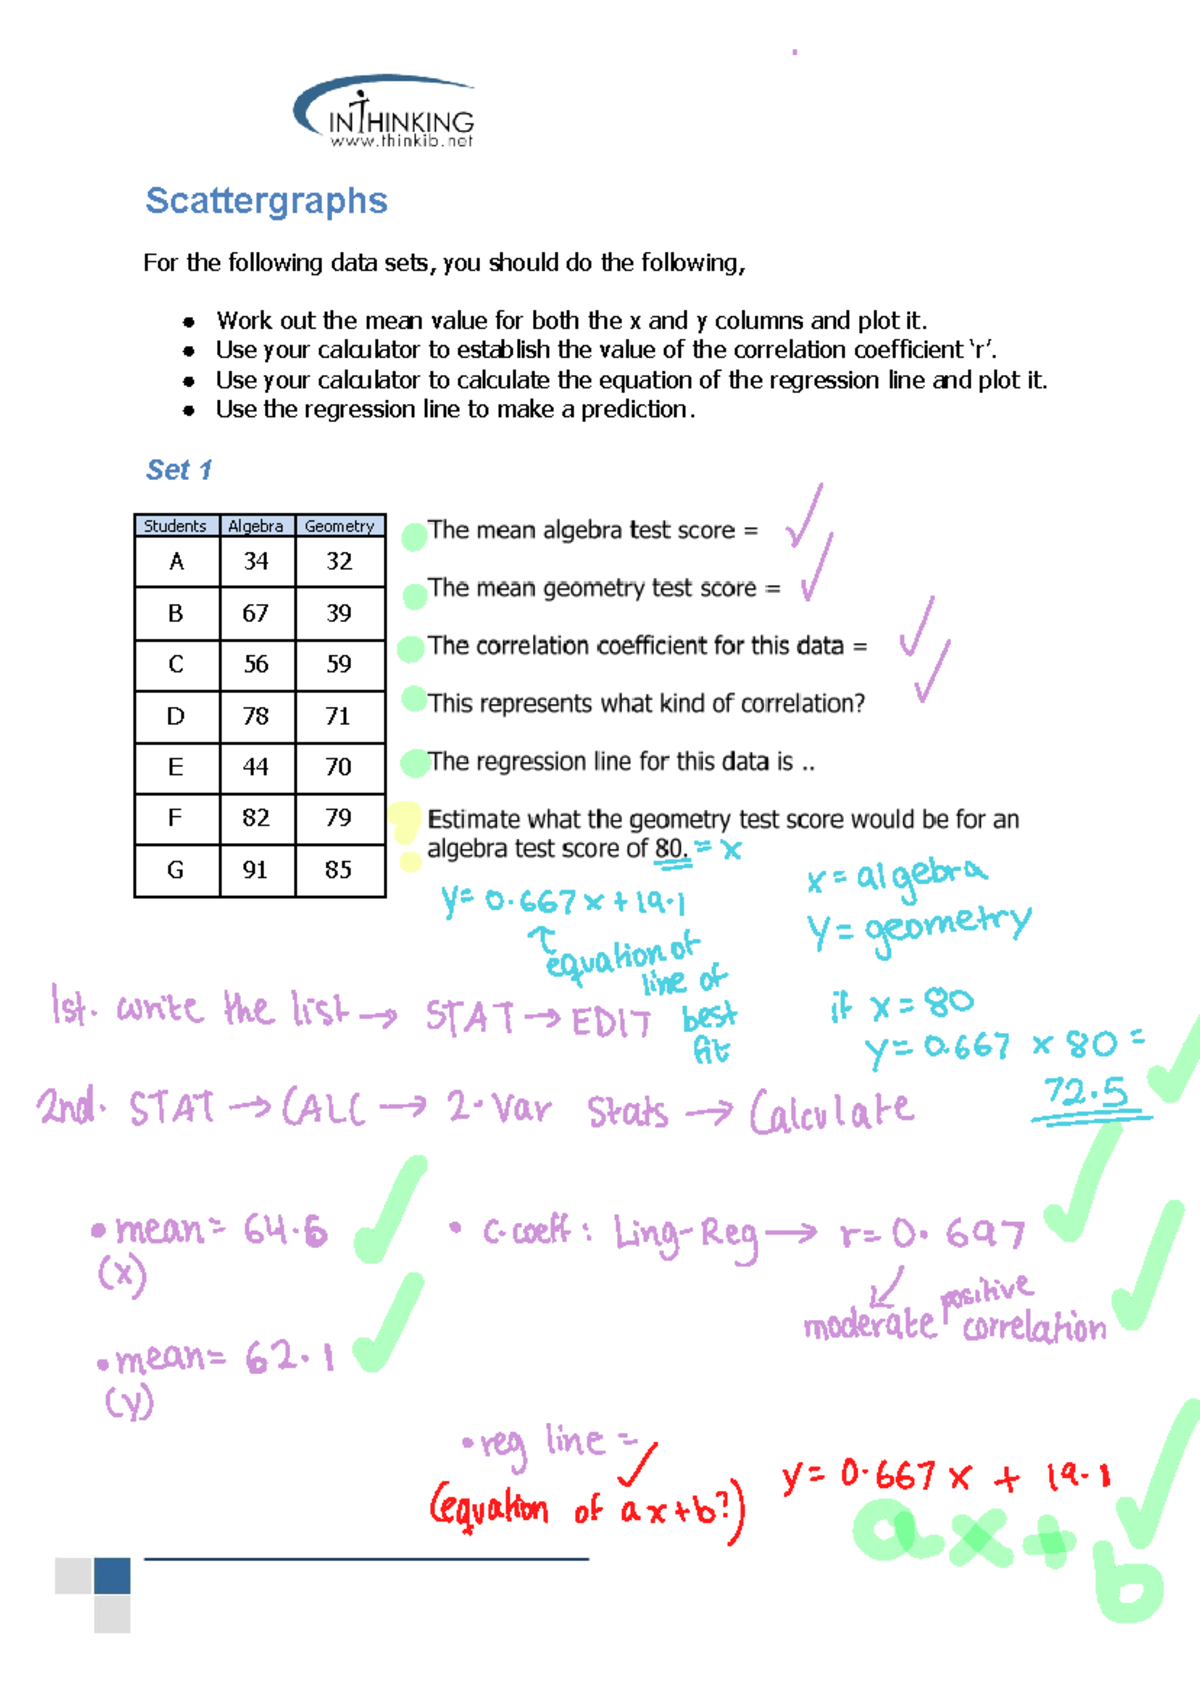 INTHINKING
www.thinkib.net
Scattergraphs
For the following data sets, you should do the following,
● Work out the mean value for both the x and y columns and plot it.
● Use your calculator to establish the value of the correlation coefficient 'r'.
● Use your calculator to calculate the equation of the regression line and plot it.
● Use the regression line to make a prediction.
Set 1
Students Algebra Geometry
A 34 32
B 67 39
C 56 59
D 78 71
E 44 70
F 82 79
G 91 85
The mean algebra test score = ✓
The mean geometry test score = ✓
The correlation coefficient for this data = ✓
This represents what kind of correlation? ✓
The regression line for this data is ..
? Estimate what the geometry test score would be for an
algebra test score of 80. = x
y= 0.667x+19.1
↑ equation of
line of
best
fit
x = algebra
y = geometry
if x = 80
y= 0.667 x 80 =
72.5 ✓
1st. write the list → STAT → EDIT
2nd. STAT → CALC → 2-Var Stats → Calculate
• mean= 64.6 ✓
(x)
• mean= 62.1 ✓
(y)
• c.coeff: Ling-Reg → r= 0.697 ✓
moderate positive correlation ✓
• reg line =
(equation of ax+b?) ✓
y= 0.667x + 19.1 ✓
ax+b